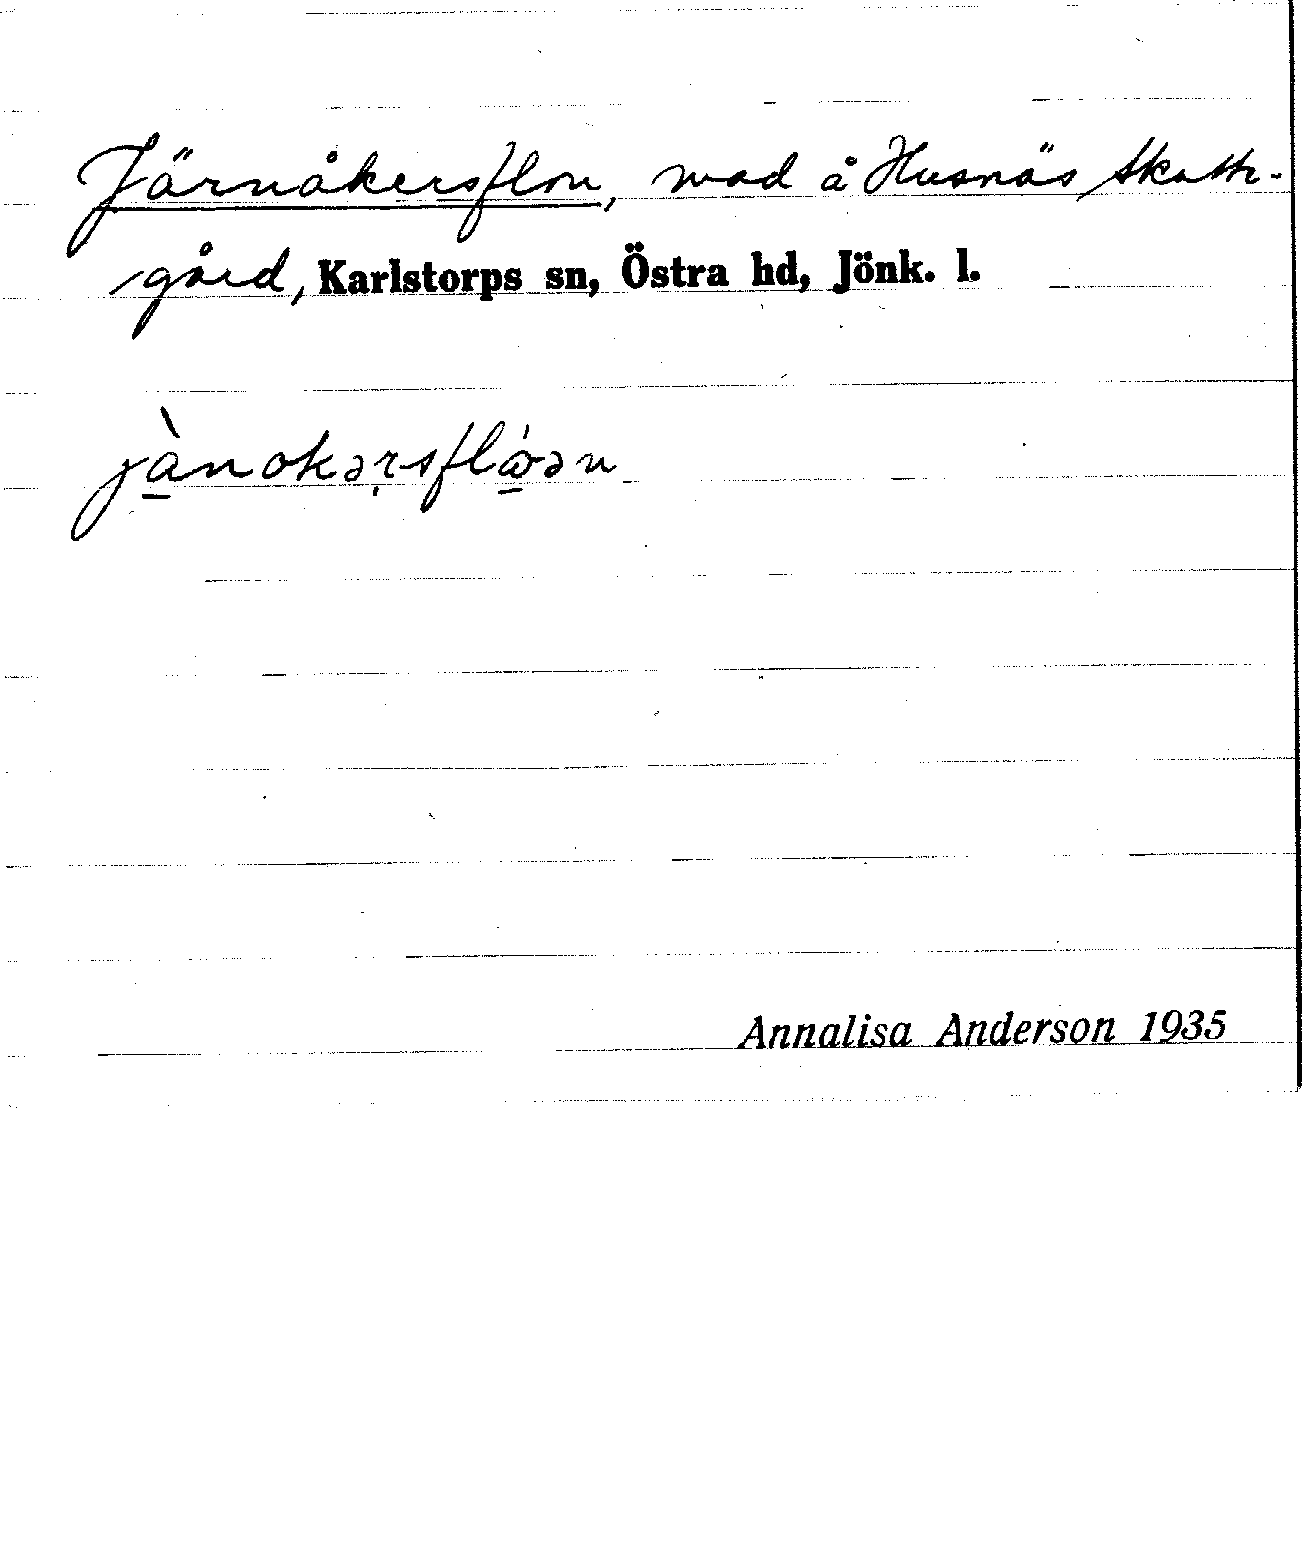 Järnåkersflon, mad å Husnäs Skatte-
gård, Karlstorps sn, Östra hd, Jönk. l.
jànokərsflóən
Annalisa Anderson 1935